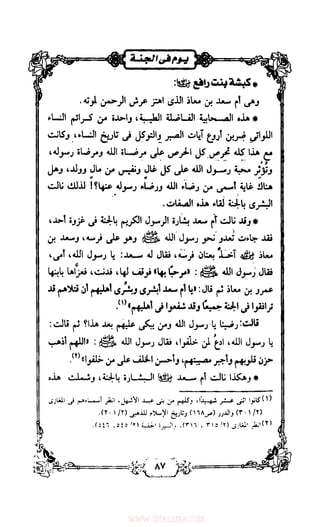 يوم في الجنة
* كبشة بنت رافع :
وهي أم سعد بن معاذ الذي اهتز عرش الرحمن لموته.
* هذه الصحابية الفاضلة الطيبة، واحدة من كرائم النساء
اللواتي ضربن أروع آيات الصبر والتوكل في تاريخ النساء، وكانت
مع هذا كله تحرص كل الحرص على مرضاة الله ومرضاة رسوله،
وتؤثر محبة رسول الله على كل غال من نفس ومال وولد، وهل
هناك غاية أسمى من رضاء الله ورضاء رسوله عنها؟! لذلك نالت
البشرى بالجنة لقاء هذه الصفات.
* وقد نالت أم سعد بشارة الرسول الكريم بالجنة في غزوة أحد،
فقد جاءت تعدو نحو رسول الله ﷺ وهو على فرسه، وسعد بن
معاذ آخذ بعنان فرسه، فقال له سعد: يا رسول الله، أمي،
فقال رسول الله ﷺ : «مرحبًا بها» فوقف لها، فدنت، فعزاها بابنها
عمرو بن معاذ ثم قال: «يا أم سعد أبشري وبشري أهليهم أن قتلاهم قد
ترافقوا في الجنة جميعًا وقد شفعوا في أهليهم» (١).
قالت: رضينا يا رسول الله ومن يبكي عليهم بعد هذا؟ ثم قالت :
يا رسول الله، ادع لمن خلفوا، فقال رسول الله ﷺ : «اللهم أذهب
حزن قلوبهم وأجر مصيبتهم، وأحسن الخلف على من خلفوا» (٢).
* وهكذا نالت أم سعد البشارة بالجنة، وشملت هذه
(١) كانوا اثني عشر شهيدًا، وكلهم من بني عبد الأشهل، انظر أسماءهم في المغازي
(٣٠١/٢) والدرر (ص١٦٨) وتاريخ الإسلام للذهبي (٢٠١/٢).
(٢) انظر المغازي (٣١٥/٢ ، ٣١٦)، والسيرة الحلبية (٥٤٥/٢، ٥٤٦).
٨٧